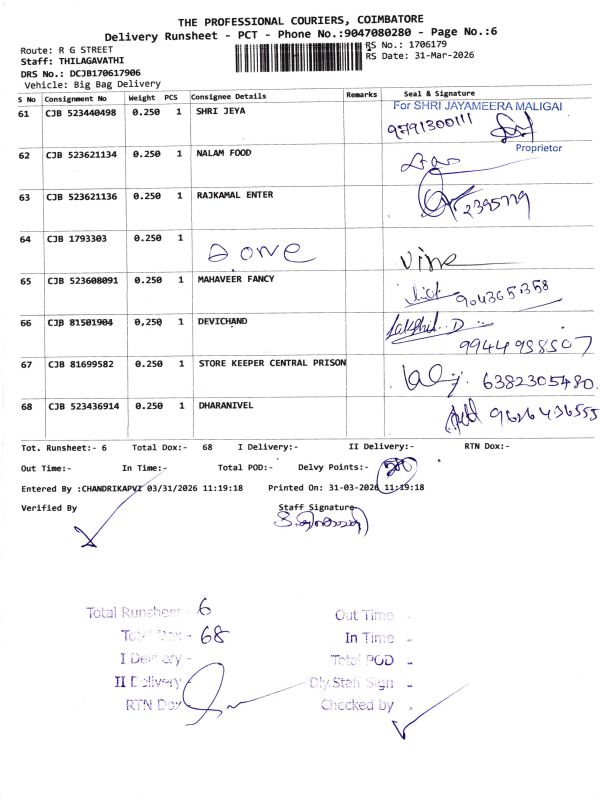 THE PROFESSIONAL COURIERS, COIMBATORE
Delivery Runsheet - PCT - Phone No.:9047080280 - Page No.:6
Route: R G STREET
RS No.: 1706179
Staff: THILAGAVATHI
RS Date: 31-Mar-2026
DRS No.: DCJB170617906
Vehicle: Big Bag Delivery
S No Consignment No Weight PCS Consignee Details Remarks Seal & Signature
61 CJB 523440498 0.250 1 SHRI JEYA
For SHRI JAYAMEERA MALIGAI
9791300111
Proprietor
62 CJB 523621134 0.250 1 NALAM FOOD
63 CJB 523621136 0.250 1 RAJKAMAL ENTER
64 CJB 1793303 0.250 1
65 CJB 523608091 0.250 1 MAHAVEER FANCY
66 CJB 81501904 0,250 1 DEVICHAND
67 CJB 81699582 0.250 1 STORE KEEPER CENTRAL PRISON 6382305480.
68 CJB 523436914 0.250 1 DHARANIVEL 9626436555
Tot. Runsheet:- 6 Total Dox:- 68 I Delivery:- II Delivery:- RTN Dox:-
Out Time:- In Time:- Total POD:- Delvy Points:-
Entered By :CHANDRIKAPVI 03/31/2026 11:19:18 Printed On: 31-03-2026 11:19:18
Verified By Staff Signature
Total Runsheet - 6 Out Time -
Total Dox - 68 In Time -
I Delivery - Total POD -
II Delivery - Dly.Staff Sign -
RTN Dox - Checked by -